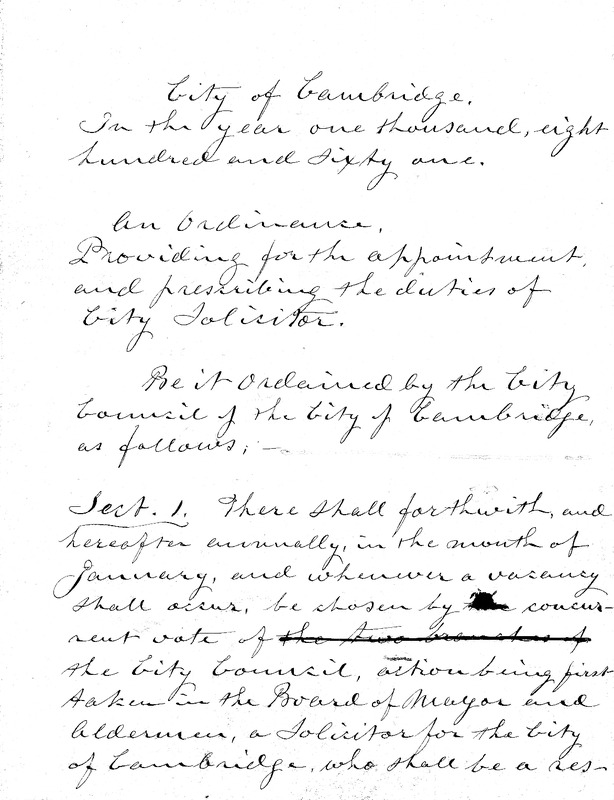 City of Cambridge.
In the year one thousand, eight
hundred and sixty one.
An Ordinance,
Providing for the appointment,
and prescribing the duties of
City Solicitor.
Be it Ordained by the City
Council of the City of Cambridge,
as follows; —
Sect. 1. There shall forthwith, and
hereafter annually, in the month of
January, and whenever a vacancy
shall occur, be chosen by concur-
rent vote of the two branches of
the City Council, action being first
taken in the Board of Mayor and
Aldermen, a Solicitor for the City
of Cambridge, who shall be a res-